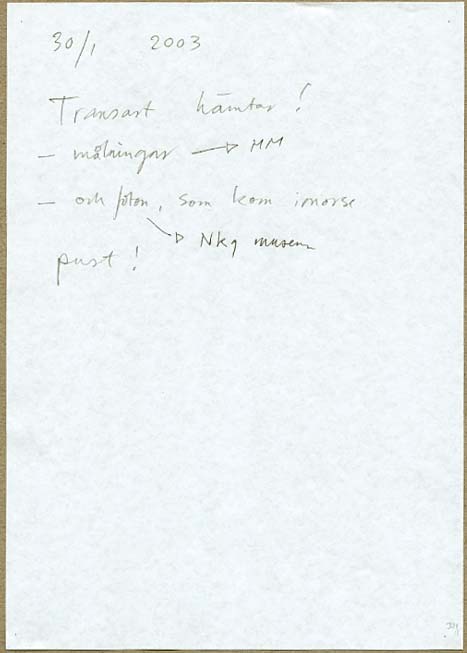 30/1 2003
Transart hämtar!
– målningar → MM
– och foton, som kom imorse
→ Nkg museum
pust!